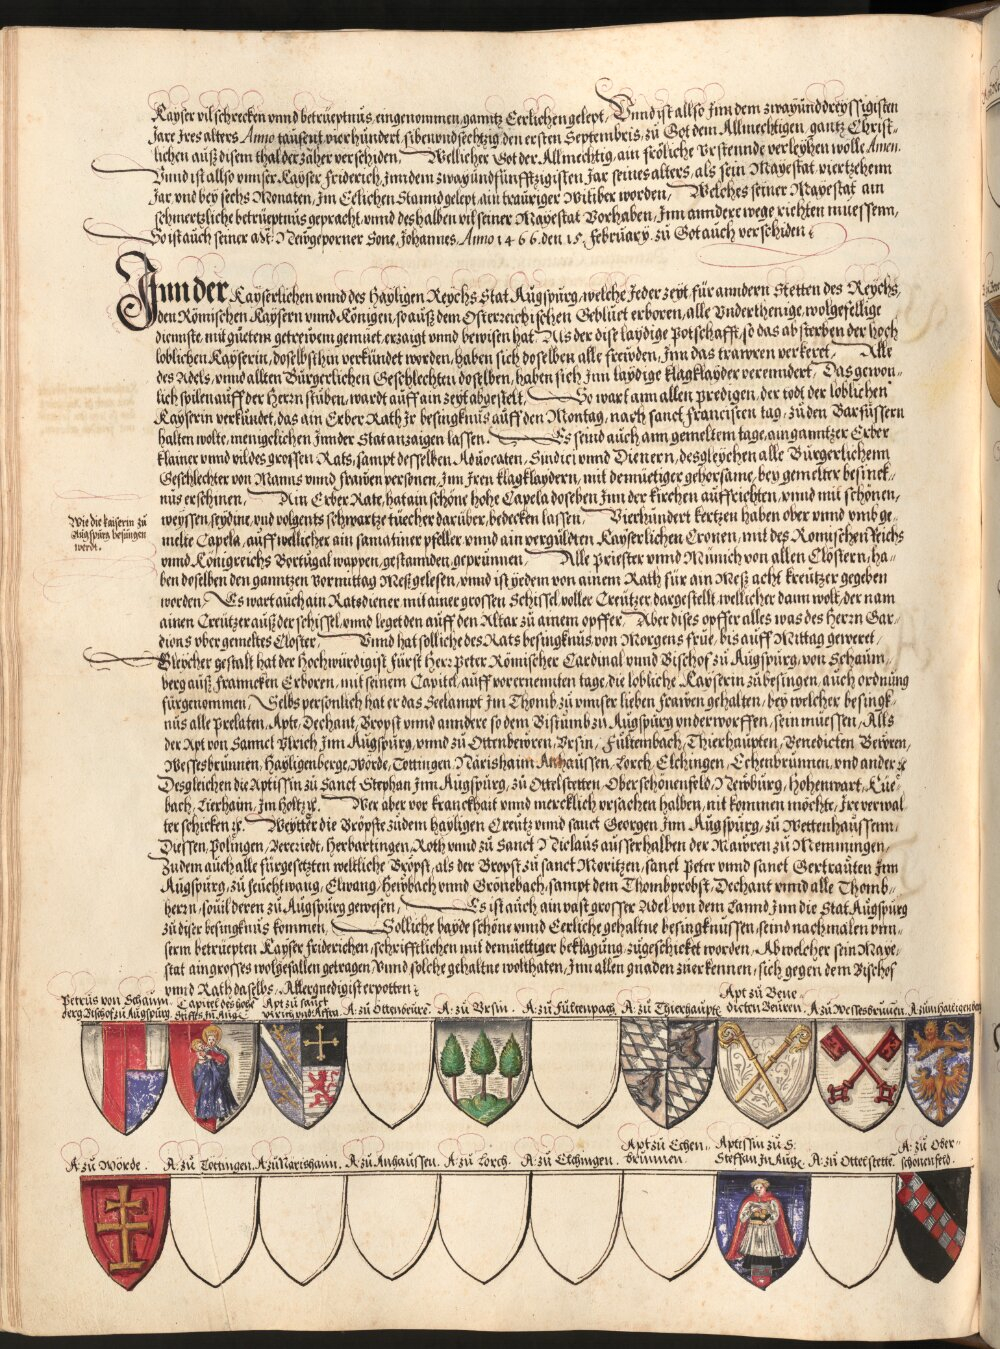 Kayser vil schrecken vnnd betrüeptnüs eingenommen, ganntz Eerlichen gelept, Vnnd ist allso Jnn dem zwayünddreyssigisten
Jare Jres alters Anno tausent vierhundert sibenvndsechtzig, den ersten Septembris, zü Got dem Allmechtigen gantz Christ-
lichen aüß disem thal der zäher verschiden, Wellicher Got der Allmechtig, ain fröliche Vrstennde verleyhen wölle Amen.
Vnnd ist allso vnnser Kayser friderich, Jnn dem zwayündfünfftzigisten Jar seines alters, als sein Mayestat viertzehenn
Jar vnd bey sechs Monaten, Jm Eelichen Stannd gelept, ain traüriger Witiber worden, Welches seiner Mayestat ain
schmertzliche betrüeptnüs gepracht, vnnd deshalben vil seiner Mayestat Vorhaben, Jnn anndere wege richten müessenn,
So ist aüch seiner Mt: Neẅgeporner Sone, Johannes, Anno 1466. den 15. february. zü Got aüch verschiden.
Jnn der Kayserlichen vnnd des Hayligen Reychs Stat Aügspürg, welche Jeder zeyt für anndern Stetten des Reychs,
den Römischen Kaysern vnnd Königen, so aüß dem Osterreichischen Geblüet erboren, alle Vnderthenige, wolgefellige
diennste, mit güetem getreẅem gemüet, erzaigt vnnd bewisen hat, Als der dise laydige Potschafft, so das absterben der hoch
loblichen Kayserin, doselbsthin verkündet worden, haben sich doselben alle freẅden, Jnn das traẅren verkeret, Alle
des Adels, vnnd allten Bürgerlichen Geschlechten doselben, haben sich Jnn laydige klagklayder verenndert, Das gewon-
lich spilen aüff der Herrn stüben, wardt aüff ain zeyt abgestelt, So wart ann allen predigen, der todt der loblichen
Kayserin verkündet, das ain Erber Rath Jr besingknüs aüff den Montag, nach sanct francisten tag, zü den Barfüssern
halten wolte, menigelichen Jnn der Stat anzaigen lassen. Es seind aüch ann gemeltem tage, ain ganntzer Erber
klainer vnnd vil des grossen Rats, sampt desselben Aduocaten, Sindici vnnd Dienern, desgleychen alle Bürgerlichenn
Geschlechter von Manns vnnd fraẅen personen, Jnn Jren klagklaydern, mit demüetiger gehorsame, bey gemelter besinck-
nüs erschinen, Ain Erber Rate, hat ain schöne hohe Capela doseben Jnn der kirchen aüffrichten, vnnd mit schönen,
weyssen, seydine, vnd volgents schwartze tüecher darüber, bedecken lassen, Vierhündert kertzen haben ober vnnd vmb ge-
melte Capela, aüff wellicher ain samatiner pfeller vnnd ain vergülten Kayserlichen Cronen, mit des Romischen Reichs
vnnd Königreichs Portügal wappen, gestannden, geprünnen, Alle Priester vnnd Münich von allen Clöstern, ha-
ben doselben den ganntzen vormittag Meß gelesen, vnnd ist yedem von ainem Rath für ain Meß acht kreützer gegeben
worden, Es wart aüch ain Ratsdiener, mit ainer grossen Schissel, voller Creützer dargestellt, wellicher dann wolt, der nam
ainen Creützer aüß der schissel, vnnd leget den aüff den Altar zü ainem opffer, Aber dises opffer alles was des Herrn Gar-
dions vber gemeltes Closter, Vnnd hat solliche des Rats besingknüs, von Morgens früe, bis aüff Mittag geweret,
Gleycher gestalt hat der Hochwürdigist fürst Herr Peter Römischer Cardinal vnnd Bischof zü Aügspürg, von Schaüm-
berg aüß franncken Erboren, mit seinem Capitel, aüff vorernennten tage, die lobliche Kayserin zübesingen, aüch ordnüng
fürgenommen, Selbs persönlich hat er das Seelampt Jm Thomb zü vnnser lieben fraẅen gehalten, bey welcher besingk-
nüs alle prelaten, Äpte, Dechant, Bröpst vnnd anndere so dem Bistümb zü Aügspürg vnderworffen, sein müessen, Alls
der Apt von Sannct Vlrich Jnn Aügspürg, vnnd zü Ottenbeẅren, Vrsin, Fültenbach, Thierhaupten, Benedicten Beẅren,
Wessesbrünnen, Hayligenberge, Wörde, Tottingen, Närishaim, Anhaüssen, Lorch, Elchingen, Echenbrünnen, vnd ander ꝛc
Desgleichen die Äptissin zü Sanct Stephan Jnn Aügspürg, zü Ottelstetten, Oberschönenfeld, Neẅbürg, Hohenwart, Küe-
bach, Lierhaim, Jm Holtz ꝛc. Wer aber vor kranckhait vnnd mercklich vrsachen halben, nit kommen möchte, Jre verwal
ter schicken ꝛc. Weytter die Bröpste zü dem hayligen Creütz vnnd sanct Georgen Jnn Aügspürg, zü Wettenhaüssenn,
Diessen, Polingen, Berriedt, Herbartingen, Roth vnnd zü Sanct Niclaüs aüsserhalben der Maẅren zü Memmingen,
Zü dem aüch alle fürgesetzten weltliche Bröpst, als der Bropst zü sanct Moritzen, sanct Peter vnnd sanct Gertraüten Jnn
Aügspürg, zü feüchtwang, Elwang, Heẏbach vnnd Grönebach, sampt dem Thombprobst, Dechant vnnd alle Thomb-
herrn, soüil deren zü Aügspürg gewesen, Es ist aüch ain vast grosser Adel von dem Lannd Jnn die Stat Aügspürg
zü diser besingknüs kommen, Solliche bayde schöne vnnd Eerliche gehaltne besingknüssen, seind nachmalen vnn-
serm betrüepten Kayser friderichen, schrifftlichen mit demüettiger beklagüng zügeschicket worden, Ab welcher sein Maye-
stat ain grosses wolgefallen getragen, Vnnd solche gehaltne wolthaten, Jnn allen gnaden zü erkennen, sich gegen dem Bischof
vnnd Rath daselbs, Allergnedigist erpotten.
Wie die kaiserin zü
Augspürg besüngen
werdt.
Petrüs von Schaum-
berg Bischof zü Aügspürg.
Capitel des hohe
Stiffts Jn Aug.
Apt zü sanct
Vlrich vnd Affra
A: zü Ottenbeüre.
A: zü Vrsin.
A: zü Fültenpach
A: zü Thierhaupte
Apt zü Bene-
dicten Beüren.
A: zü Wessesbrünen
A: zum hailigenberg
A: zü Wörde.
A: zü Tottingen
A: zü Närishaim.
A: zü Anhaüssen.
A: zü Lorch.
A: zü Elchingen.
Apt zü Echen-
brünnen.
Aptissin zü S:
Steffan Jn Aug.
A: zü Ottelstette.
A: zü Ober-
schönenfeld.